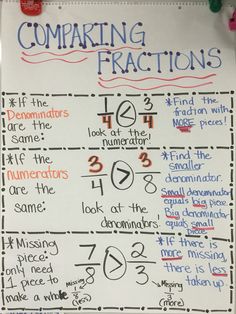 COMPARING
FRACTIONS
*If the
Denominators
are the
same:
1/4 < 3/4
look at the
numerator!
*Find the
fraction with
MORE pieces!
*If the
numerators
are the
same:
3/4 > 3/8
look at the
denominators!
*Find the
smaller
denominator.
Small denominator
equals big piece.
Big denominator
equals small
piece.
*Missing
piece:
only need
1 piece to
make a whole
7/8 > 2/3
Missing
1/8
(less)
Missing
1/3
(more)
*If there is
more missing,
there is less
taken up